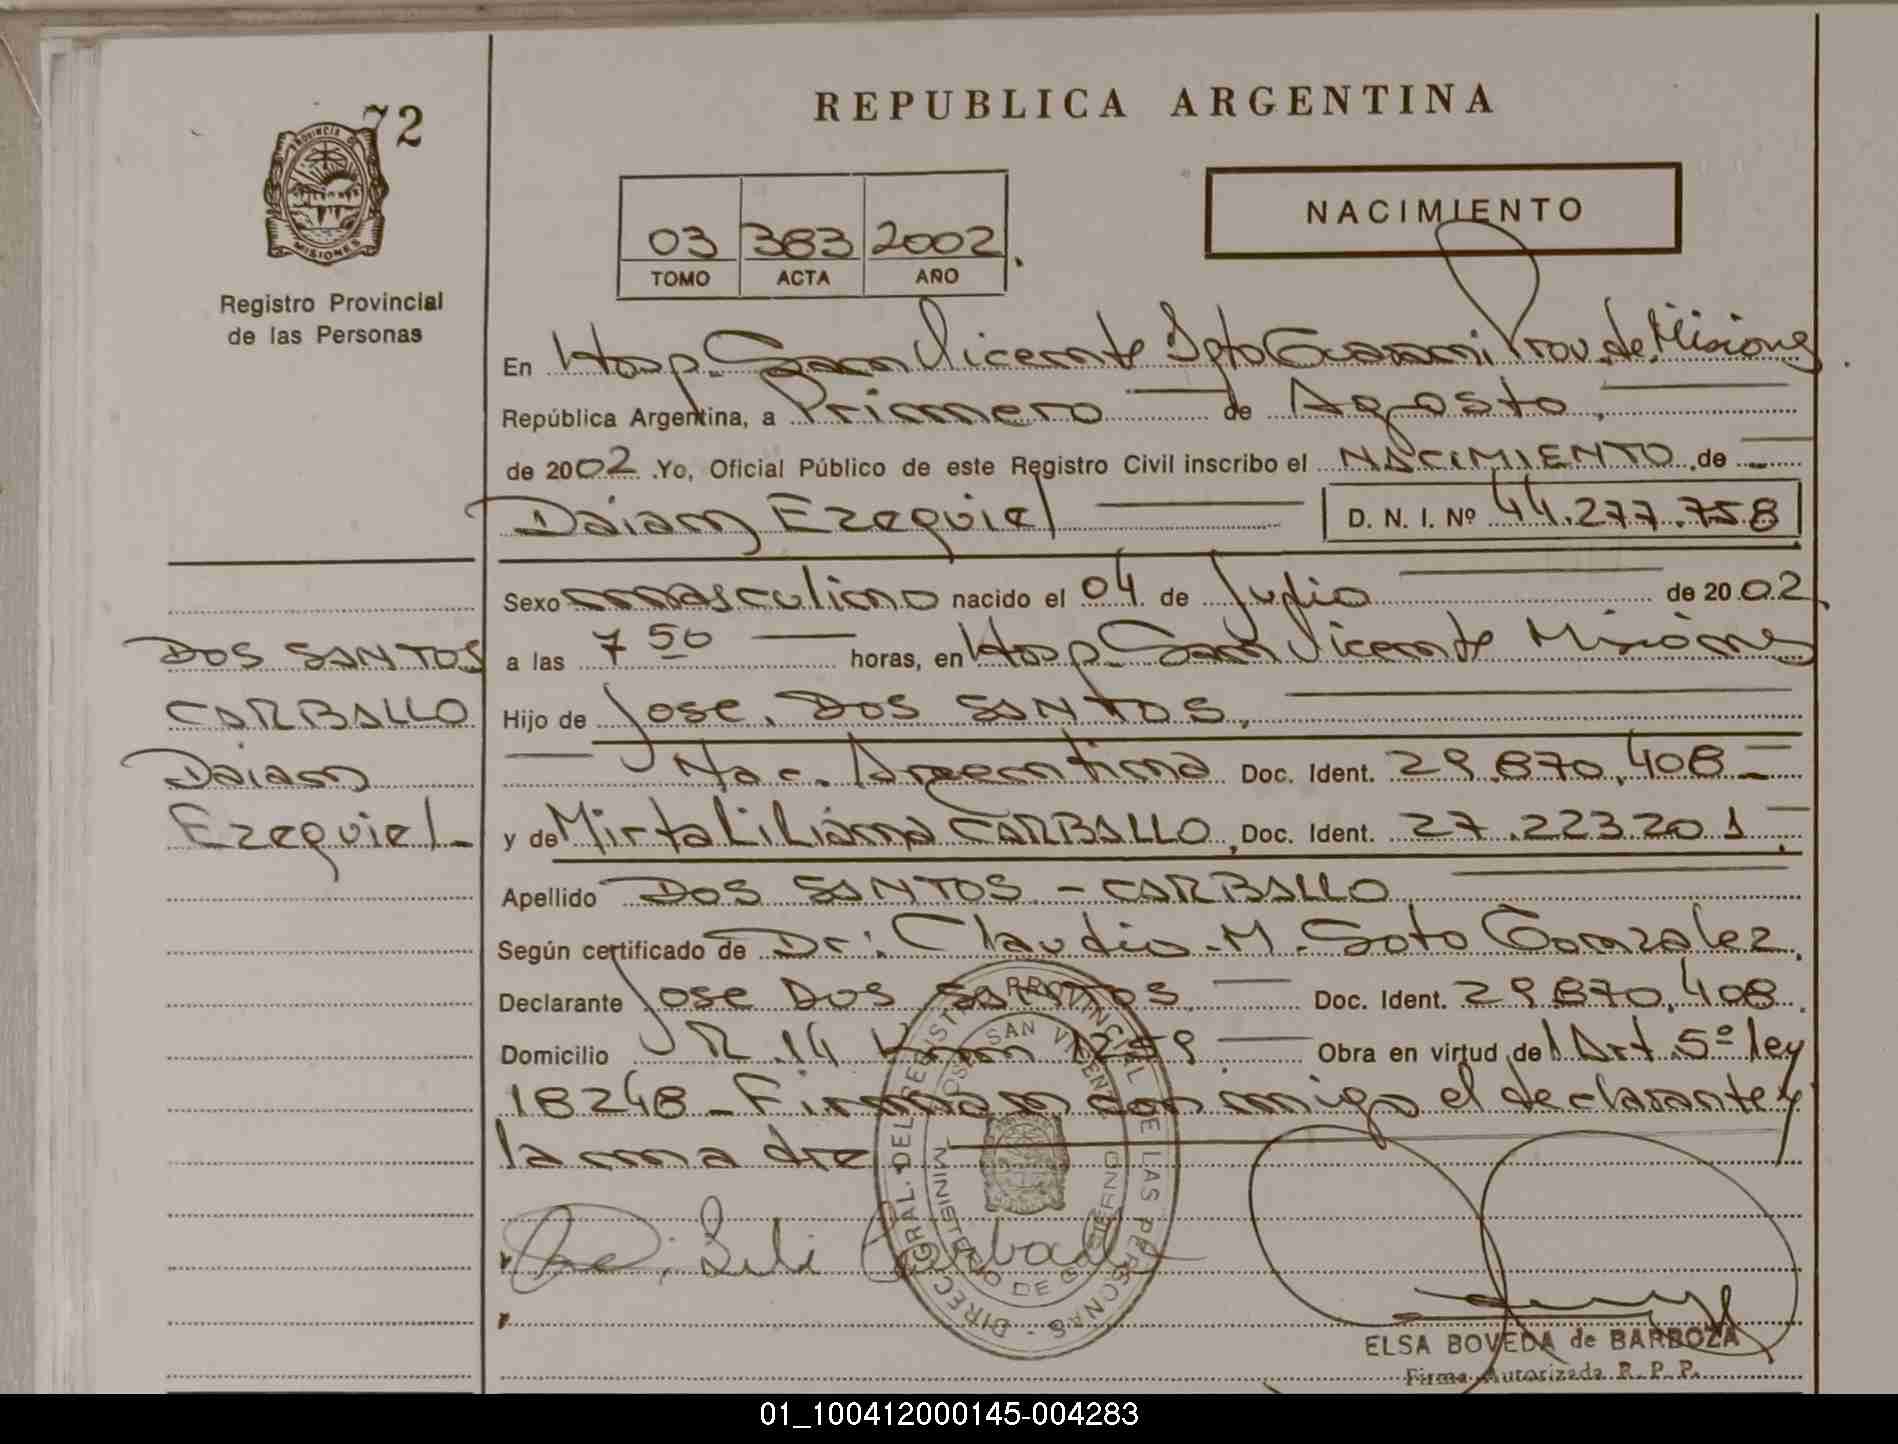 72
PROVINCIA DE
MISIONES
Registro Provincial
de las Personas
REPUBLICA ARGENTINA
03 383 2002.
TOMO ACTA AÑO
NACIMIENTO
En Hosp. San Vicente Dpto Guarani Prov. de Misiones
República Argentina, a Primero de Agosto,
de 2002. Yo, Oficial Público de este Registro Civil inscribo el NACIMIENTO de
Daian Ezequiel D. N. I. Nº 44.277.758
Sexo masculino nacido el 04 de Julio de 2002,
a las 7 50 horas, en Hosp. San Vicente Misiones
Hijo de Jose. DOS SANTOS,
Nac. Argentina Doc. Ident. 29.870.408-
y de Mirta Liliana CARBALLO, Doc. Ident. 27.223.201.
Apellido DOS SANTOS - CARBALLO
Según certificado de Dr: Claudio. M. Soto Gonzalez.
Declarante Jose DOS SANTOS Doc. Ident. 29.870.408.
Domicilio R. 14 Km 1259 Obra en virtud del Art. 5º ley
18248 - Firman con migo el declarante y
la madre
DOS SANTOS
CARBALLO
Daian
Ezequiel-
DIREC. GRAL. DEL REGISTRO PROVINCIAL DE LAS PERSONAS -
HOSP. SAN VICENTE
MINISTERIO DE GOBIERNO
Lili Carballo
ELSA BOVEDA de BARBOZA
Firma Autorizada R. P. P.
01_100412000145-004283